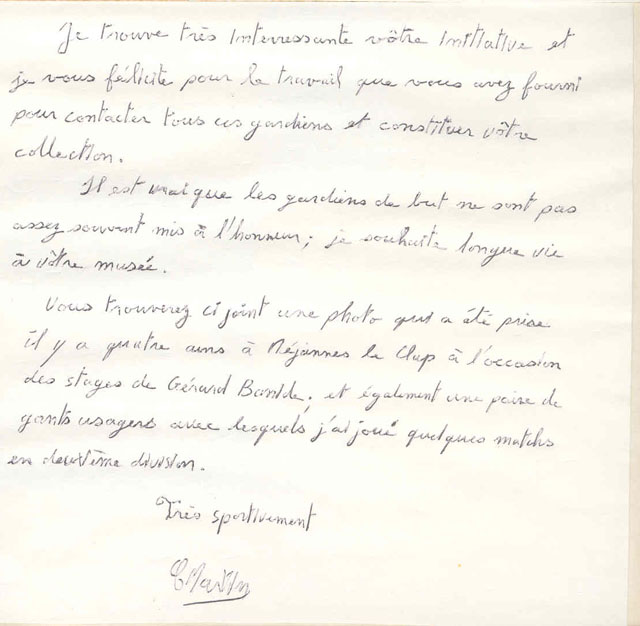 Je trouve très interressante vôtre initiative et
je vous félicite pour le travail que vous avez fourni
pour contacter tous ces gardiens et constituer vôtre
collection.
Il est vrai que les gardiens de but ne sont pas
assez souvent mis à l'honneur; je souhaite longue vie
à vôtre musée.
Vous trouverez ci joint une photo qui a été prise
il y a quatre ans à Méjannes le Clap à l'occasion
des stages de Gérard Banide. et également une paire de
gants usagers avec lesquels j'ai joué quelques matchs
en deuxième division.
Très sportivement